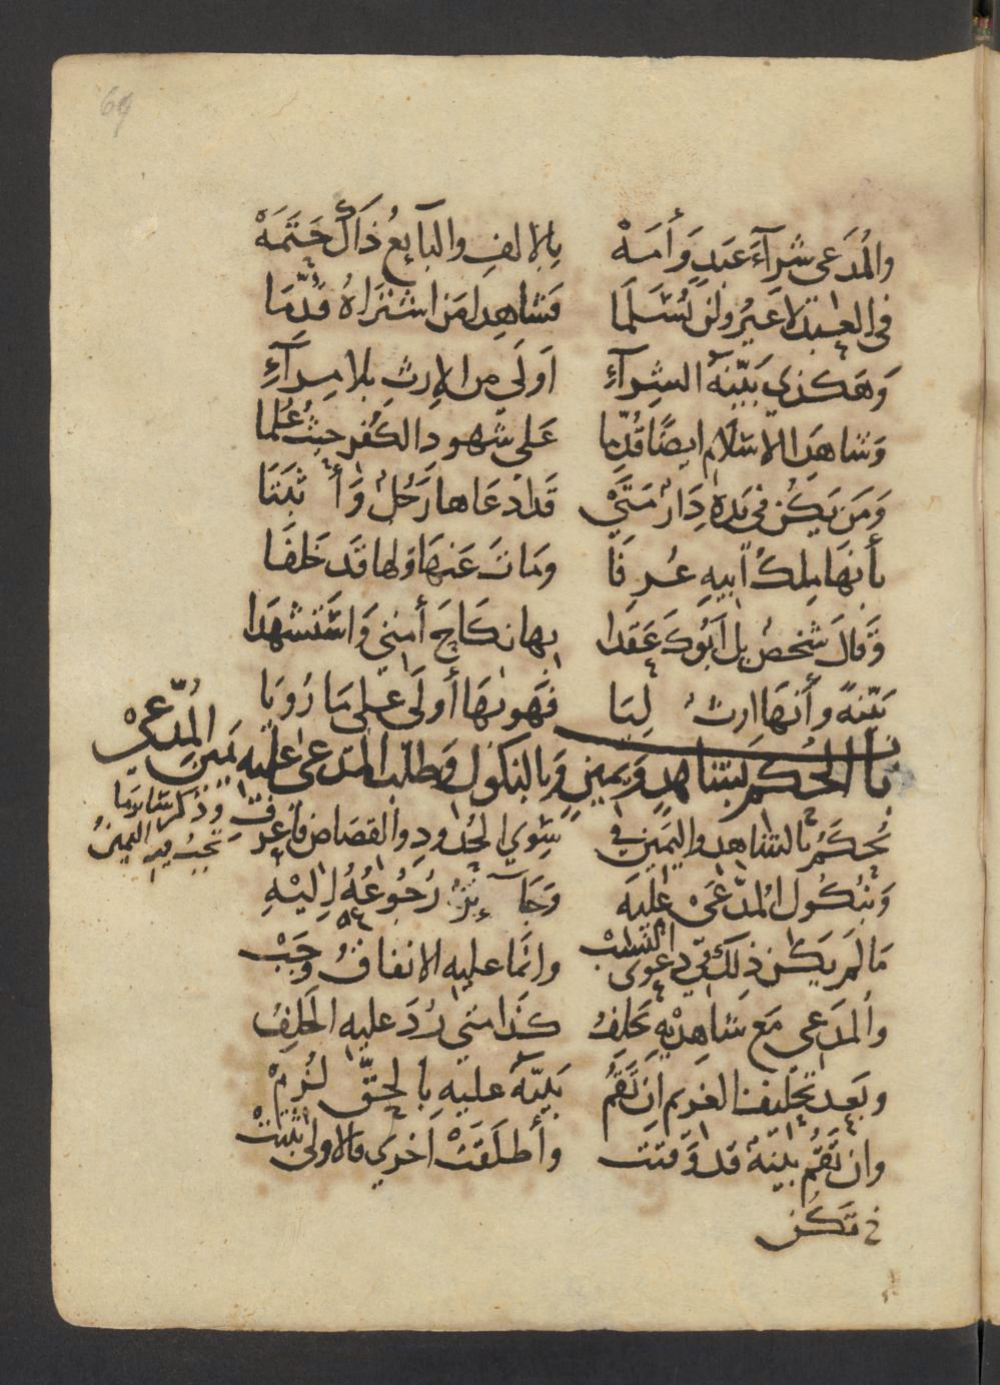 69
والمُدَعى شرآءَ عَبَدٍ وَأَمَهْ بِالالفِ والبَآيعُ ذَاكَ خَتَمَهْ
في العبد لا غيرُ ولن تُسَلَمَا فشاهدا من اشتراهُ قُدِّمَا
وَهَكذي بَيّنَهُ الشِرآءِ اَولَى من الاِرثِ بلا مِرآءِ
وَشاهدَا الاسَلَام ايضًا قُدِّما عَلى شهود الكُفر حيثُ عُلما
وَمَن يَكُن في يَدهِ دَارٌ مَتَىْ قد ادعَاها رَجُلٌ وَأثبَتَا
بأنهَا مِلكُ ابيهِ عُرِفَا ومَاتَ عَنهَا ولها قَد خَلفَا
وَقالَ شخصٌ بل اَبُوكَ عَقَدا بها نكَاحَ أمني وَاستَشهَدا
بَيّنهً وأنهَا ارثٌ لِيَا فَهو بهَا أولَى عَلى مَا رُوِيَا
باب الحُكم بشاهدٍ وَيمينٍ وَبالنكول وطلب المدعى عليه يَمين المُدّعىْ
وذكر ما تجبُ فيهِ اليمينُ
يُحكَمُ بالشاهد واليَمين في سِوي الحُدودِ والقصَاص فاعرفِ
وَبنُكُول المُدّعَىْ عليهِ وَجَآئزٌ رُجُوعُهُ اِليْهِ
مَا لَم يَكُن ذلكَ في دعوى النسَبْ وانمَا عليه الانفاقُ وَجَبْ
والمدَعي مَع شَاهِدَيْهِ يَحلِفُ كذا متي رُدَ عليهِ الحَلِفُ
وبَعد تحليف الغريم اِن تَقُم بَيِنّهٌ عليهِ بالحقّ لَزِمْ
وان تَقُم بينهٌ قد وَقتت وأطلَقَتْ اخري فالاولى ثبتتْ
خ تَكُن